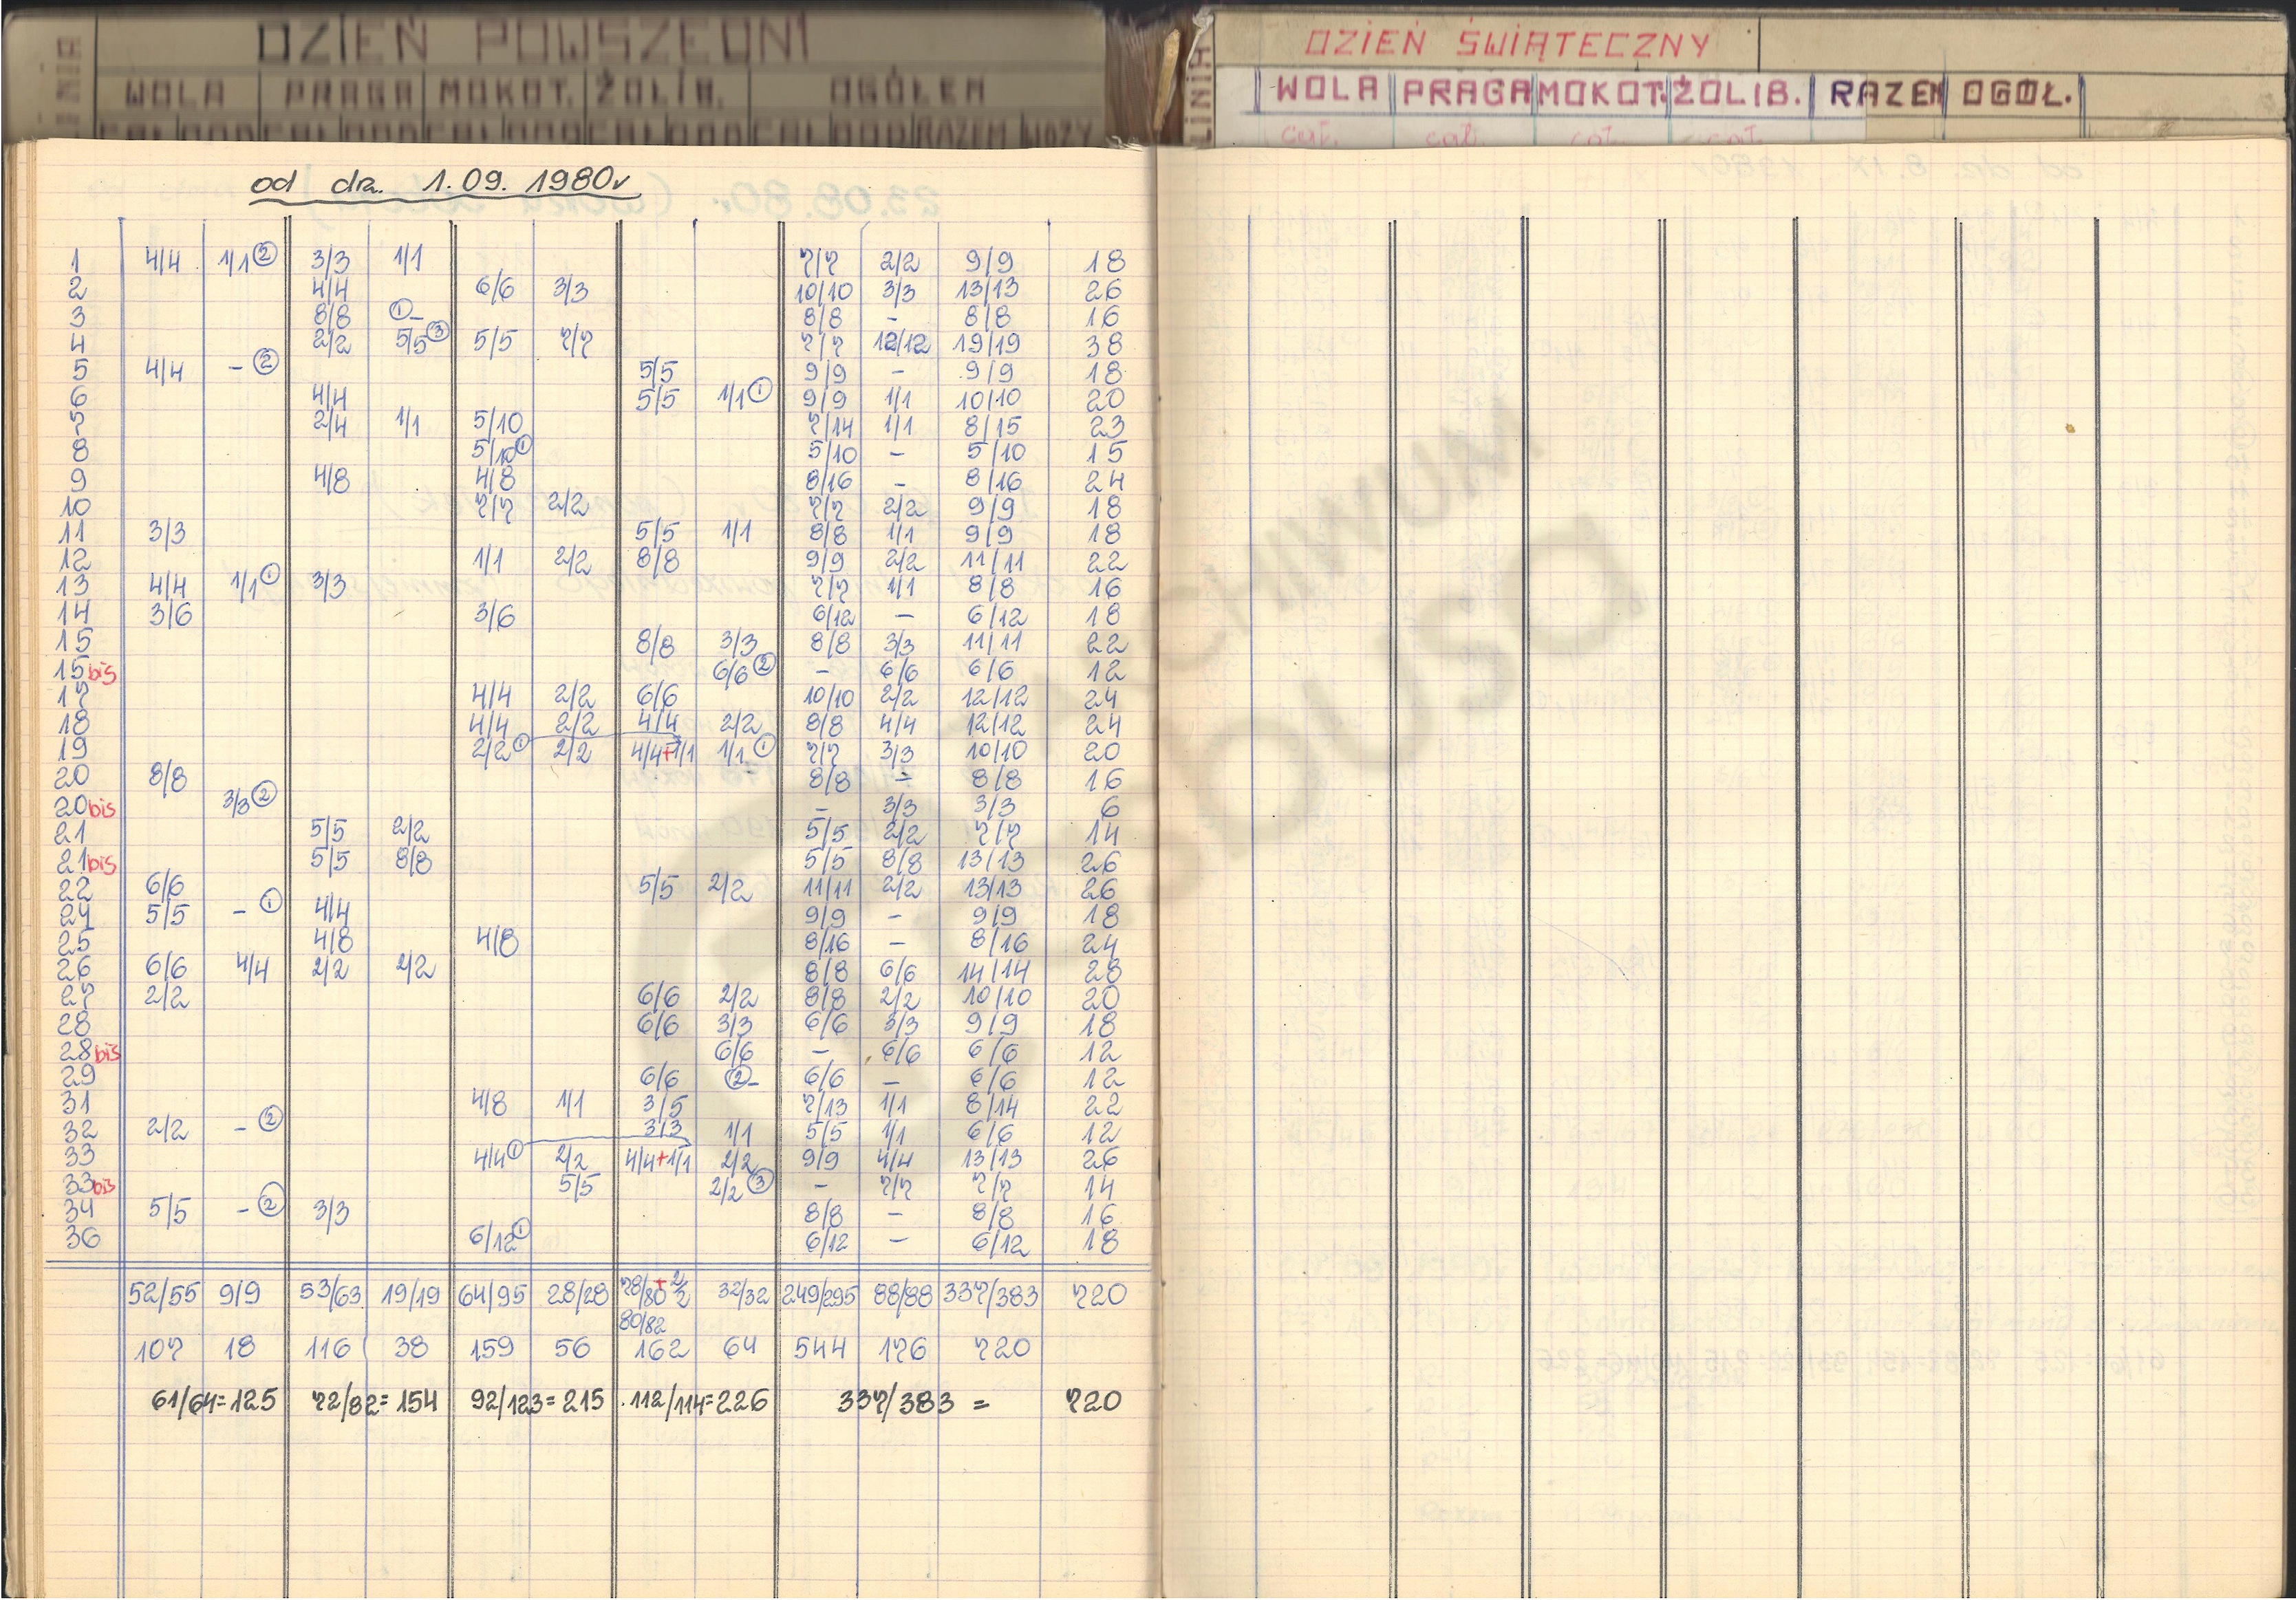 LINIA DZIEŃ POWSZEDNI
WOLA PRAGA MOKOT. ŻOLIB. OGÓŁEM
CAŁ DOD CAŁ DOD CAŁ DOD CAŁ DOD CAŁ DOD RAZEM WOZY
od dn. 1.09. 1980r
1 4/4 1/1② 3/3 1/1 7/7 2/2 9/9 18
2 4/4 6/6 3/3 10/10 3/3 13/13 26
3 8/8 ①- 8/8 - 8/8 16
4 2/2 5/5③ 5/5 7/7 7/7 12/12 19/19 38
5 4/4 -② 5/5 9/9 - 9/9 18
6 4/4 5/5 1/1① 9/9 1/1 10/10 20
7 2/4 1/1 5/10 7/14 1/1 8/15 23
8 5/10① 5/10 - 5/10 15
9 4/8 4/8 8/16 - 8/16 24
10 7/7 2/2 7/7 2/2 9/9 18
11 3/3 5/5 1/1 8/8 1/1 9/9 18
12 1/1 2/2 8/8 9/9 2/2 11/11 22
13 4/4 1/1① 3/3 7/7 1/1 8/8 16
14 3/6 3/6 6/12 - 6/12 18
15 8/8 3/3 8/8 3/3 11/11 22
15bis 6/6② - 6/6 6/6 12
17 4/4 2/2 6/6 10/10 2/2 12/12 24
18 4/4 2/2 4/4 2/2 8/8 4/4 12/12 24
19 2/2① 2/2 4/4+1/1 1/1① 7/7 3/3 10/10 20
20 8/8 8/8 - 8/8 16
20bis 3/3② - 3/3 3/3 6
21 5/5 2/2 5/5 2/2 7/7 14
21bis 5/5 8/8 5/5 8/8 13/13 26
22 6/6 5/5 2/2 11/11 2/2 13/13 26
24 5/5 -① 4/4 9/9 - 9/9 18
25 4/8 4/8 8/16 - 8/16 24
26 6/6 4/4 2/2 2/2 8/8 6/6 14/14 28
27 2/2 6/6 2/2 8/8 2/2 10/10 20
28 6/6 3/3 6/6 3/3 9/9 18
28bis 6/6 - 6/6 6/6 12
29 6/6 ②- 6/6 - 6/6 12
31 4/8 1/1 3/5 7/13 1/1 8/14 22
32 2/2 -② 3/3 1/1 5/5 1/1 6/6 12
33 4/4① 2/2 4/4+1/1 2/2 9/9 4/4 13/13 26
33bis 5/5 2/2③ - 7/7 7/7 14
34 5/5 -② 3/3 8/8 - 8/8 16
36 6/12① 6/12 - 6/12 18
52/55 9/9 53/63 19/19 64/95 28/28 78/80+2/2 32/32 249/295 88/88 337/383 720
80/82
107 18 116 38 159 56 162 64 544 176 720
61/64=125 72/82=154 92/123=215 112/114=226 337/383 = 720
LINIA DZIEŃ ŚWIĄTECZNY
WOLA PRAGA MOKOT. ŻOLIB. RAZEM OGÓŁ.
cał. cał. cał. cał.